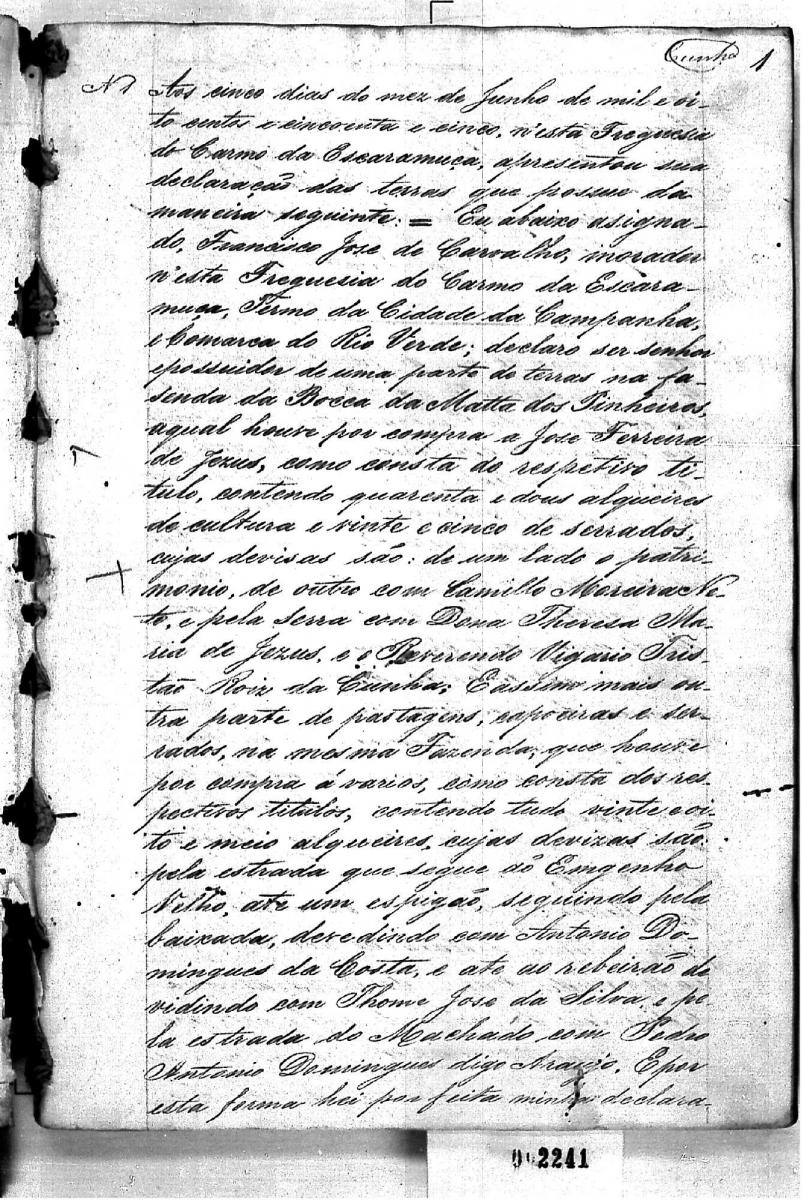 Cunha 1
N 1 Aos cinco dias do mez de Junho de mil e oi-
to centos e cincoenta e cinco, n'esta Freguesia
do Carmo da Escaramuça, apresentou sua
declaração das terras que possue da
maneira seguinte: = Eu abaixo asigna-
do, Francisco Joze de Carvalho, morador
n'esta Freguesia do Carmo da Escara-
muça, Termo da Cidade da Campanha,
e Comarca do Rio Verde; declaro ser senhor
epossuidor de uma parte de terras na fa-
senda da Bocca da Matta dos Pinheiros,
aqual houve por compra a Joze Ferreira
de Jezus, como consta do respetivo ti-
tulo, contendo quarenta e dous alqueires
de cultura e vinte e cinco de serrados,
cujas devisas são: de um lado o patri-
monio, de outro com Camillo Moreira Ne-
to, e pela Serra com Dona Theresa Ma-
ria de Jezus, e o Reverendo Vigario Tris-
tão Roiz da Cunha; Eassim mais ou-
tra parte de pastagens, capoeiras e ser-
rados, na mesma Fazenda, que houve
por compra á varios, como consta dos res-
pectivos titulos, contendo tudo vinte e oi-
to e meio alqueires, cujas devizas são:
pela estrada que segue aõ Emgenho
Velho, ate um espigão, seguindo pela
baixada, devedindo com Antonio Do-
mingues da Costa, e ate ao rebeirão de
vidindo com Thome Jose da Silva, e pe
la estrada do Machado com Pedro
Antonio Domingues digo Araujo, Epor
esta forma hei por feita minha declara-
2241